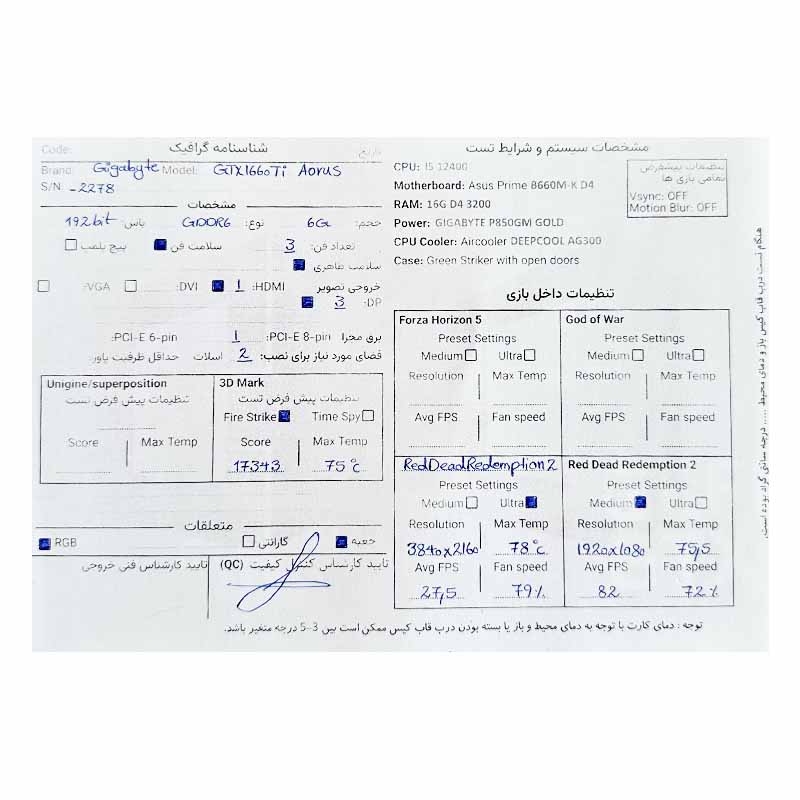 مشخصات سیستم و شرایط تست
CPU: I5 12400
Motherboard: Asus Prime B660M-K D4
RAM: 16G D4 3200
Power: GIGABYTE P850GM GOLD
CPU Cooler: Aircooler DEEPCOOL AG300
Case: Green Striker with open doors
تنظیمات پیشفرض
تمامی بازی ها
Vsync: OFF
Motion Blur: OFF
تنظیمات داخل بازی
Forza Horizon 5
Preset Settings
Medium Ultra
Resolution Max Temp
Avg FPS Fan speed
God of War
Preset Settings
Medium Ultra
Resolution Max Temp
Avg FPS Fan speed
RedDeadRedemption2
Preset Settings
Medium Ultra
Resolution Max Temp
3840x2160 78°c
Avg FPS Fan speed
27,5 79%
Red Dead Redemption 2
Preset Settings
Medium Ultra
Resolution Max Temp
1920x1080 75,5
Avg FPS Fan speed
82 72%
تاریخ شناسنامه گرافیک Code:
Brand: Gigabyte Model: GTX1660Ti Aorus
S/N -2278
مشخصات
حجم: 6G نوع: GDDR6 باس: 192bit
تعداد فن: 3 سلامت فن پیچ پلمب
سلامت ظاهری
خروجی تصویر HDMI: 1 DVI: VGA:
DP: 3
برق مجزا PCI-E 8-pin: 1 PCI-E 6-pin:
فضای مورد نیاز برای نصب: 2 اسلات حداقل ظرفیت پاور
3D Mark
تنظیمات پیش فرض تست
Fire Strike Time Spy
Score Max Temp
17343 75°c
Unigine/superposition
تنظیمات پیش فرض تست
Score Max Temp
متعلقات
جعبه گارانتی RGB
تایید کارشناس کنترل کیفیت (QC)
تایید کارشناس فنی خروجی
توجه : دمای کارت با توجه به دمای محیط و باز یا بسته بودن درب قاب کیس ممکن است بین 3-5 درجه متغیر باشد.
هنگام تست درب قاب کیس باز و دمای محیط ..... درجه سانتی گراد بوده است.